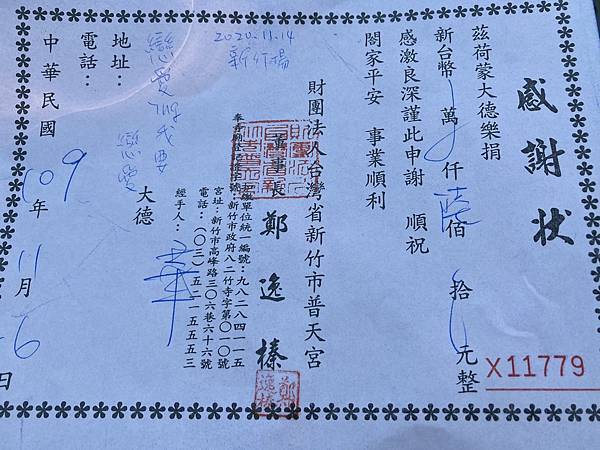 感謝狀
茲荷蒙大德樂捐
新台幣 萬 仟 陸佰 拾 元整
感激良深謹此申謝 順祝
閤家平安 事業順利
X11779
財團法人台灣省新竹市普天宮
董事長 鄭逸榛
鄭逸榛
統一編號：九八二八四一一五
號：新竹市政府八二竹寺字第０一０號
宮址：新竹市高峰路三０六巷六十六號
電話：（０三）五二一五五五三
經手人：
2020.11.14
新竹場
戀愛ing我要
戀愛
大德
地址：
電話：
中華民國 109年 11月 6日